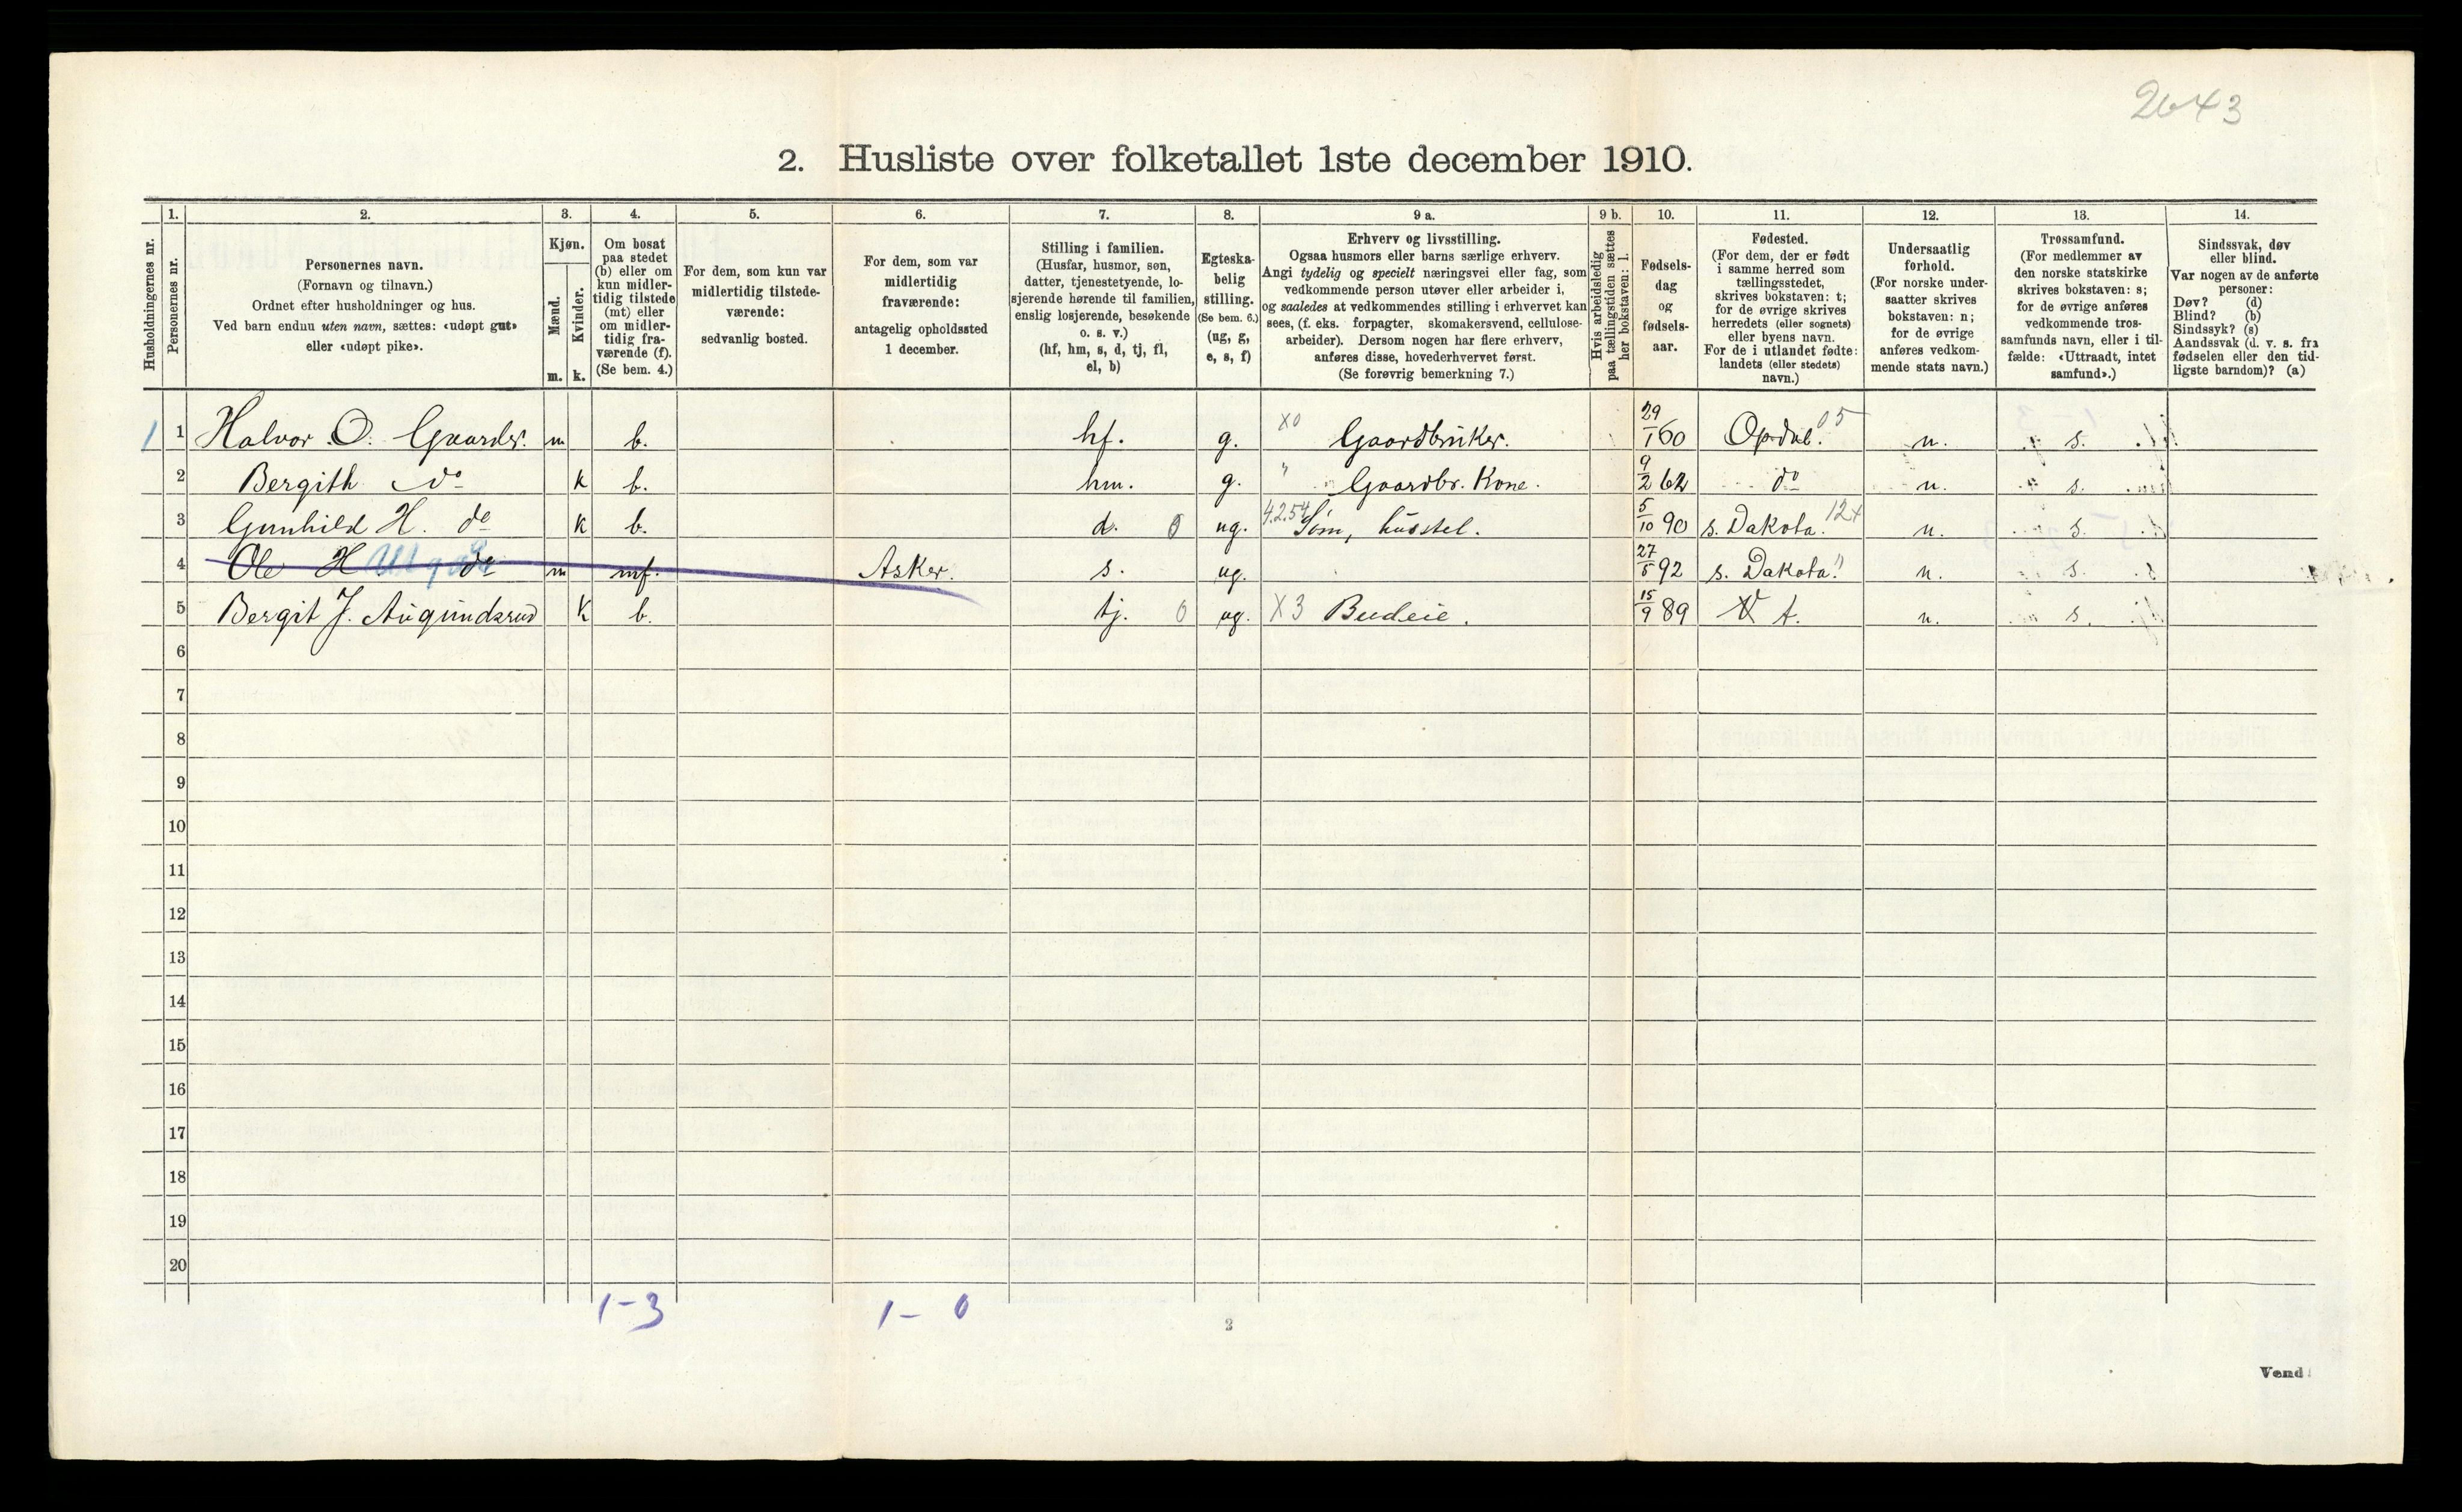 2643
2. Husliste over folketallet 1ste december 1910.
1. 2. 3. 4. 5. 6. 7. 8. 9 a. 9 b. 10. 11. 12. 13. 14.
Husholdningernes nr.
Personernes nr.
Personernes navn.
(Fornavn og tilnavn.)
Ordnet efter husholdninger og hus.
Ved barn endnu uten navn, sættes: «udøpt gut»
eller «udøpt pike».
Kjøn.
Mænd.
Kvinder.
m. k.
Om bosat
paa stedet
(b) eller om
kun midler-
tidig tilstede
(mt) eller
om midler-
tidig fra-
værende (f).
(Se bem. 4.)
For dem, som kun var
midlertidig tilstede-
værende:
sedvanlig bosted.
For dem, som var
midlertidig
fraværende:
antagelig opholdssted
1 december.
Stilling i familien.
(Husfar, husmor, søn,
datter, tjenestetyende, lo-
sjerende hørende til familien,
enslig losjerende, besøkende
o. s. v.)
(hf, hm, s, d, tj, fl,
el, b)
Egteska-
belig
stilling.
(Se bem. 6.)
(ug, g,
e, s, f)
Erhverv og livsstilling.
Ogsaa husmors eller barns særlige erhverv.
Angi tydelig og specielt næringsvei eller fag, som
vedkommende person utøver eller arbeider i,
og saaledes at vedkommendes stilling i erhvervet kan
sees, (f. eks. forpagter, skomakersvend, cellulose-
arbeider). Dersom nogen har flere erhverv,
anføres disse, hovederhvervet først.
(Se forøvrig bemerkning 7.)
Hvis arbeidsledig
paa tællingstiden sættes
her bokstaven: l.
Fødsels-
dag
og
fødsels-
aar.
Fødested.
(For dem, der er født
i samme herred som
tællingsstedet,
skrives bokstaven: t;
for de øvrige skrives
herredets (eller sognets)
eller byens navn.
For de i utlandet fødte:
landets (eller stedets)
navn.)
Undersaatlig
forhold.
(For norske under-
saatter skrives
bokstaven: n;
for de øvrige
anføres vedkom-
mende stats navn.)
Trossamfund.
(For medlemmer av
den norske statskirke
skrives bokstaven: s;
for de øvrige anføres
vedkommende tros-
samfunds navn, eller i til-
fælde: «Uttraadt, intet
samfund».)
Sindssvak, døv
eller blind.
Var nogen av de anførte
personer:
Døv? (d)
Blind? (b)
Sindssyk? (s)
Aandssvak (d. v. s. fra
fødselen eller den tid-
ligste barndom)? (a)
1 1 Halvor O. Gaarder. m b. hf. g. X0 Gaardbruker. 29/1 60 Opdal. 05 n. s.
2 Bergith do k b. hm. g. " Gaardbr. Kone. 9/2 62 do n. s.
3 Gunhild H. do k b. d. 0 ug. 4.2.54 Søm, husstel. 5/10 90 s. Dakota. 124 n. s.
4 Ole H Utgaar do m mf. Asker. s. ug. 27/5 92 s. Dakota. " n. s.
5 Bergit J. Augundsrud K b. tj. 0 ug. X3 Budeie. 15/9 89 t. n. s.
6
7
8
9
10
11
12
13
14
15
16
17
18
19
20
1-3 1-0
2
Vend!